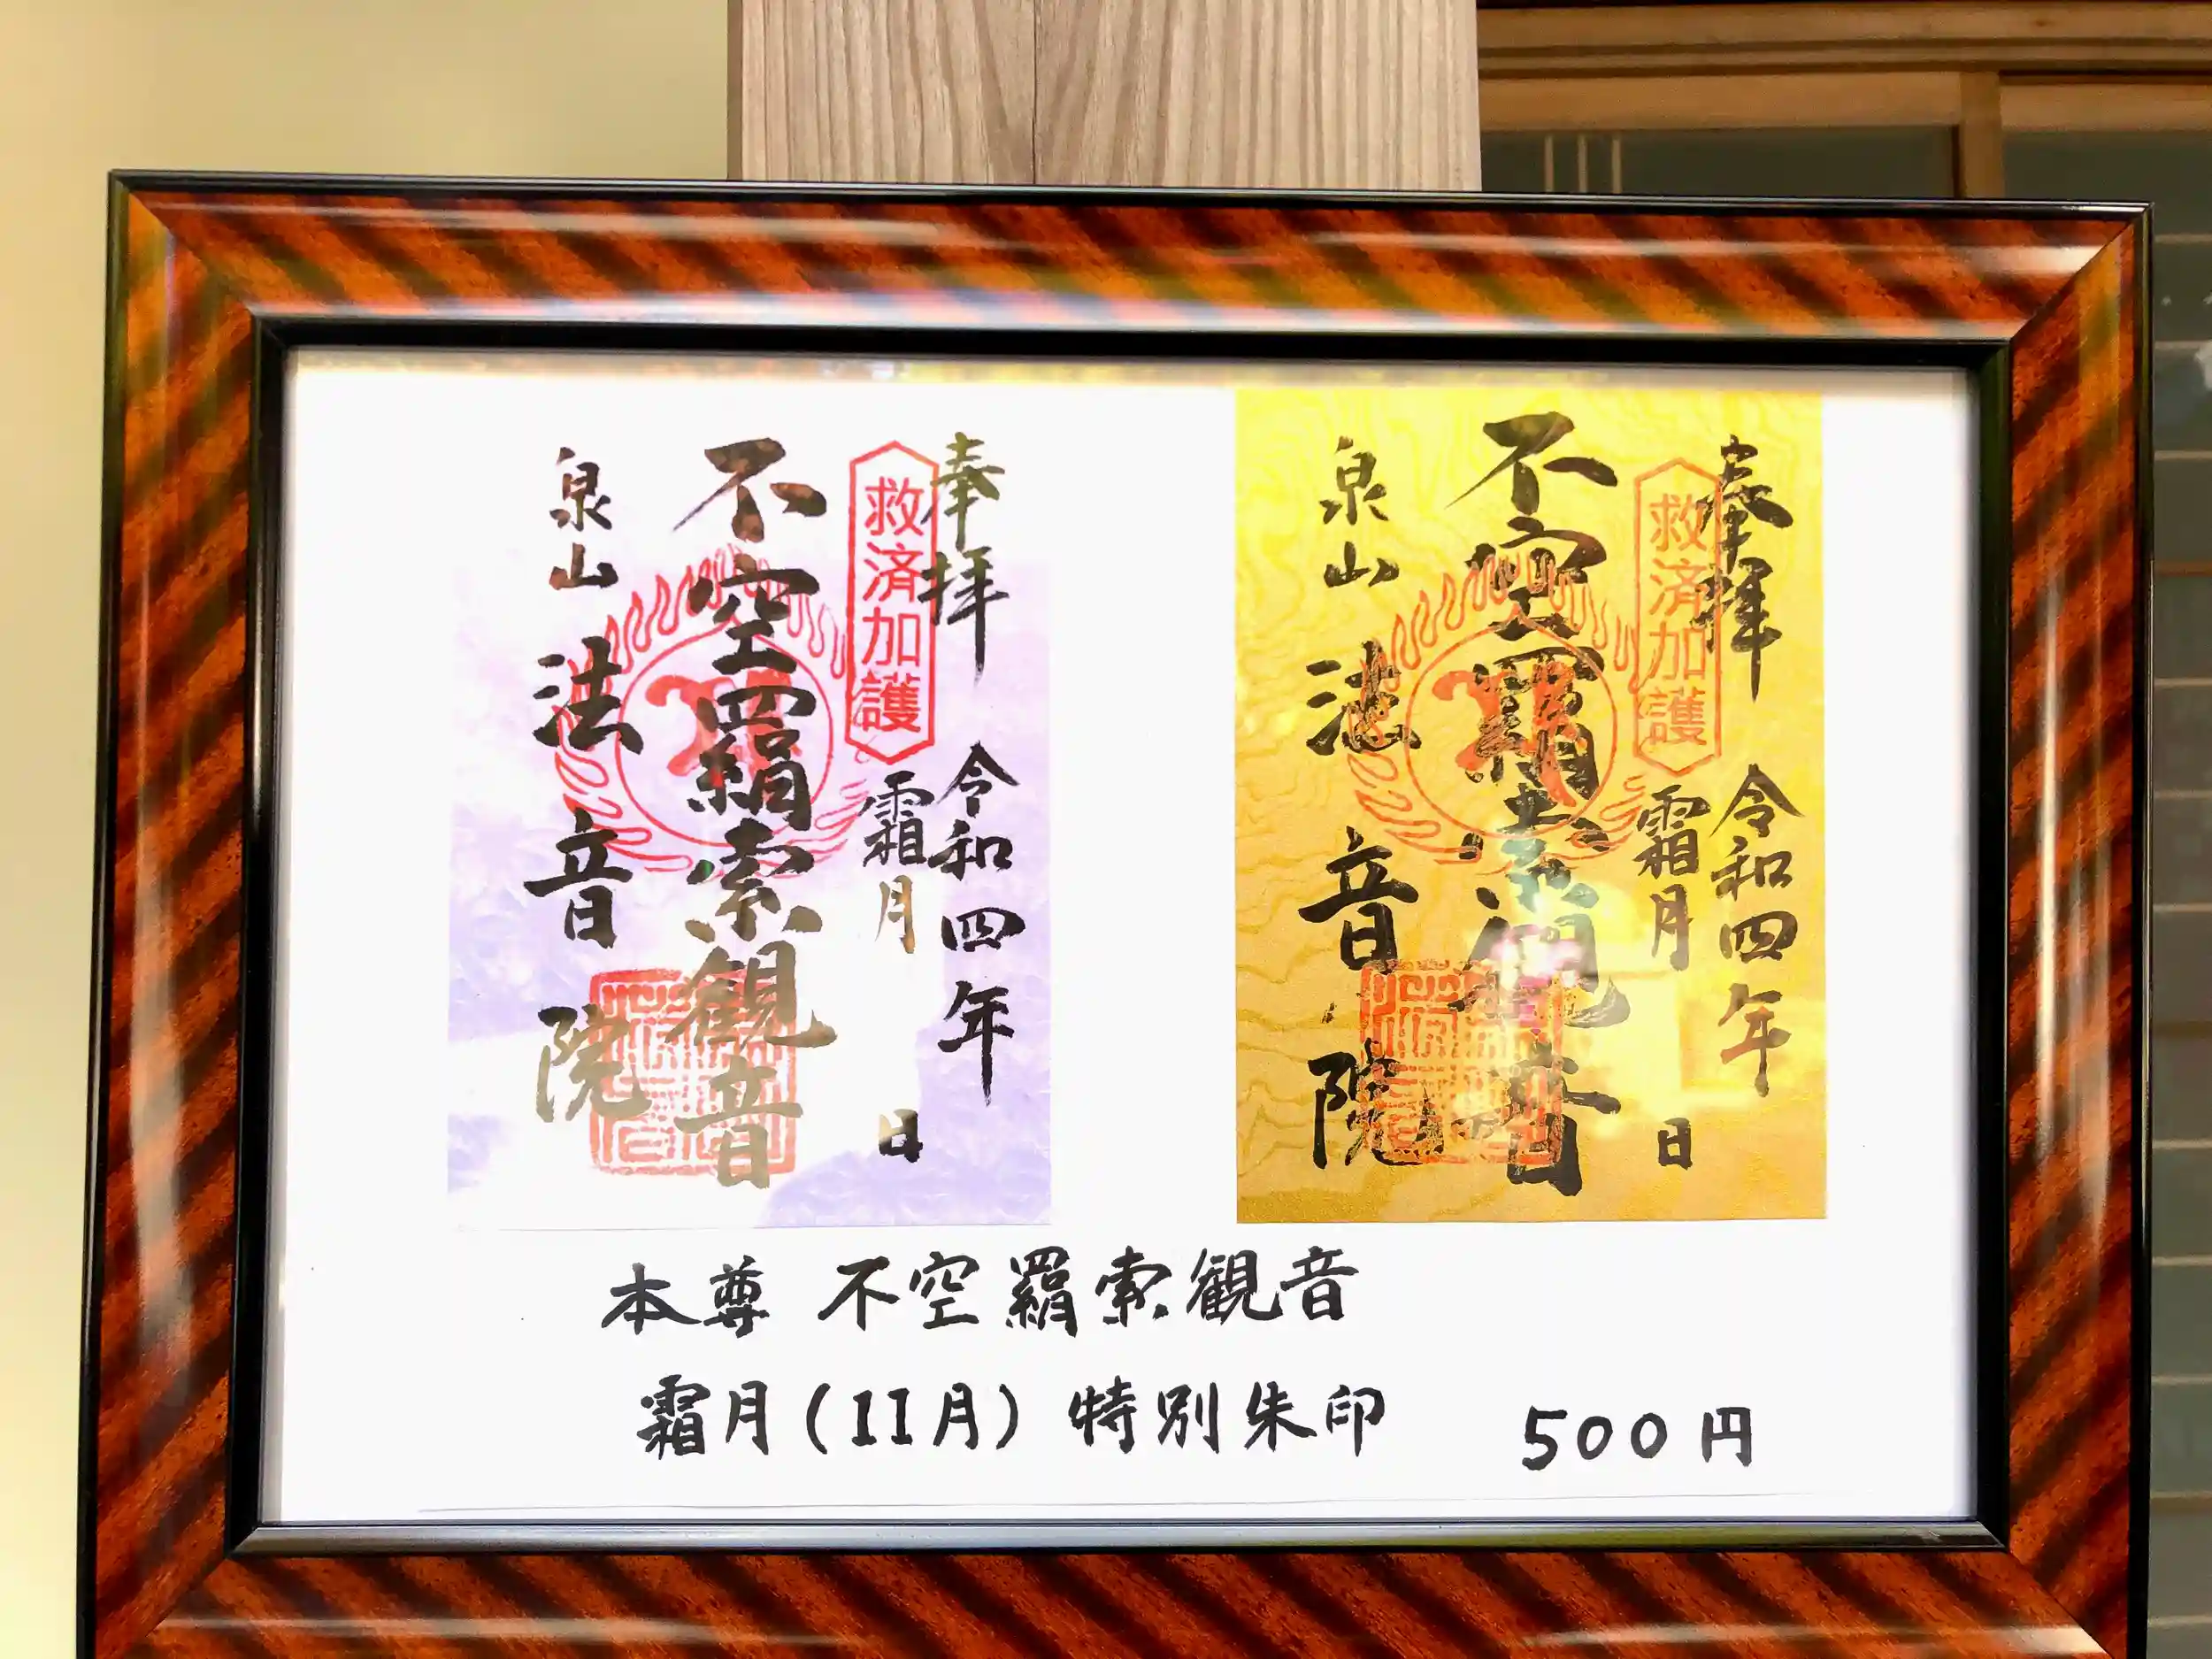 奉拝
救済加護
令和四年
霜月
日
不空羂索観音
泉山
法音院
奉拝
救済加護
令和四年
霜月
日
不空羂索観音
泉山
法音院
本尊 不空羂索観音
霜月(11月) 特別朱印 500円